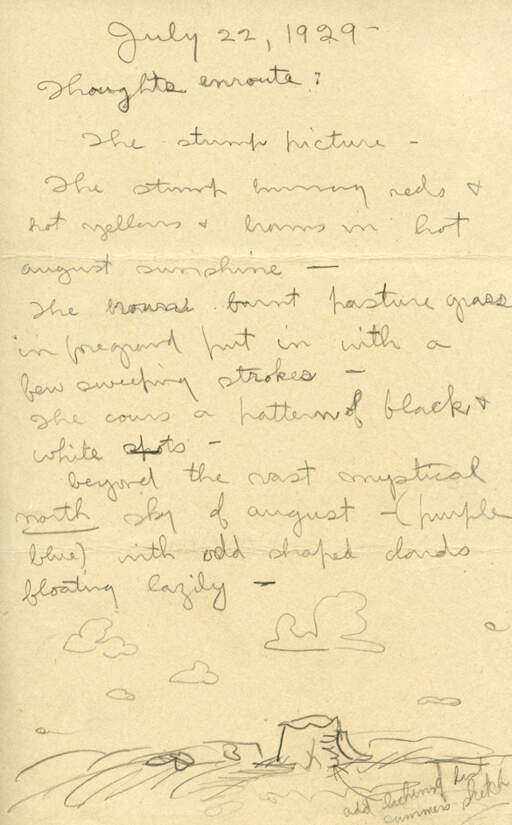 July 22, 1929 -
Thoughts enroute:
The stump picture -
The stump burning reds &
hot yellows & browns in hot
august sunshine —
The burnt pasture grass
in foreground put in with a
few sweeping strokes -
The cows a pattern of black &
white spots -
beyond the vast mystical
north sky of august - (purple
blue) with odd shaped clouds
floating lazily -
add last
summers sketch